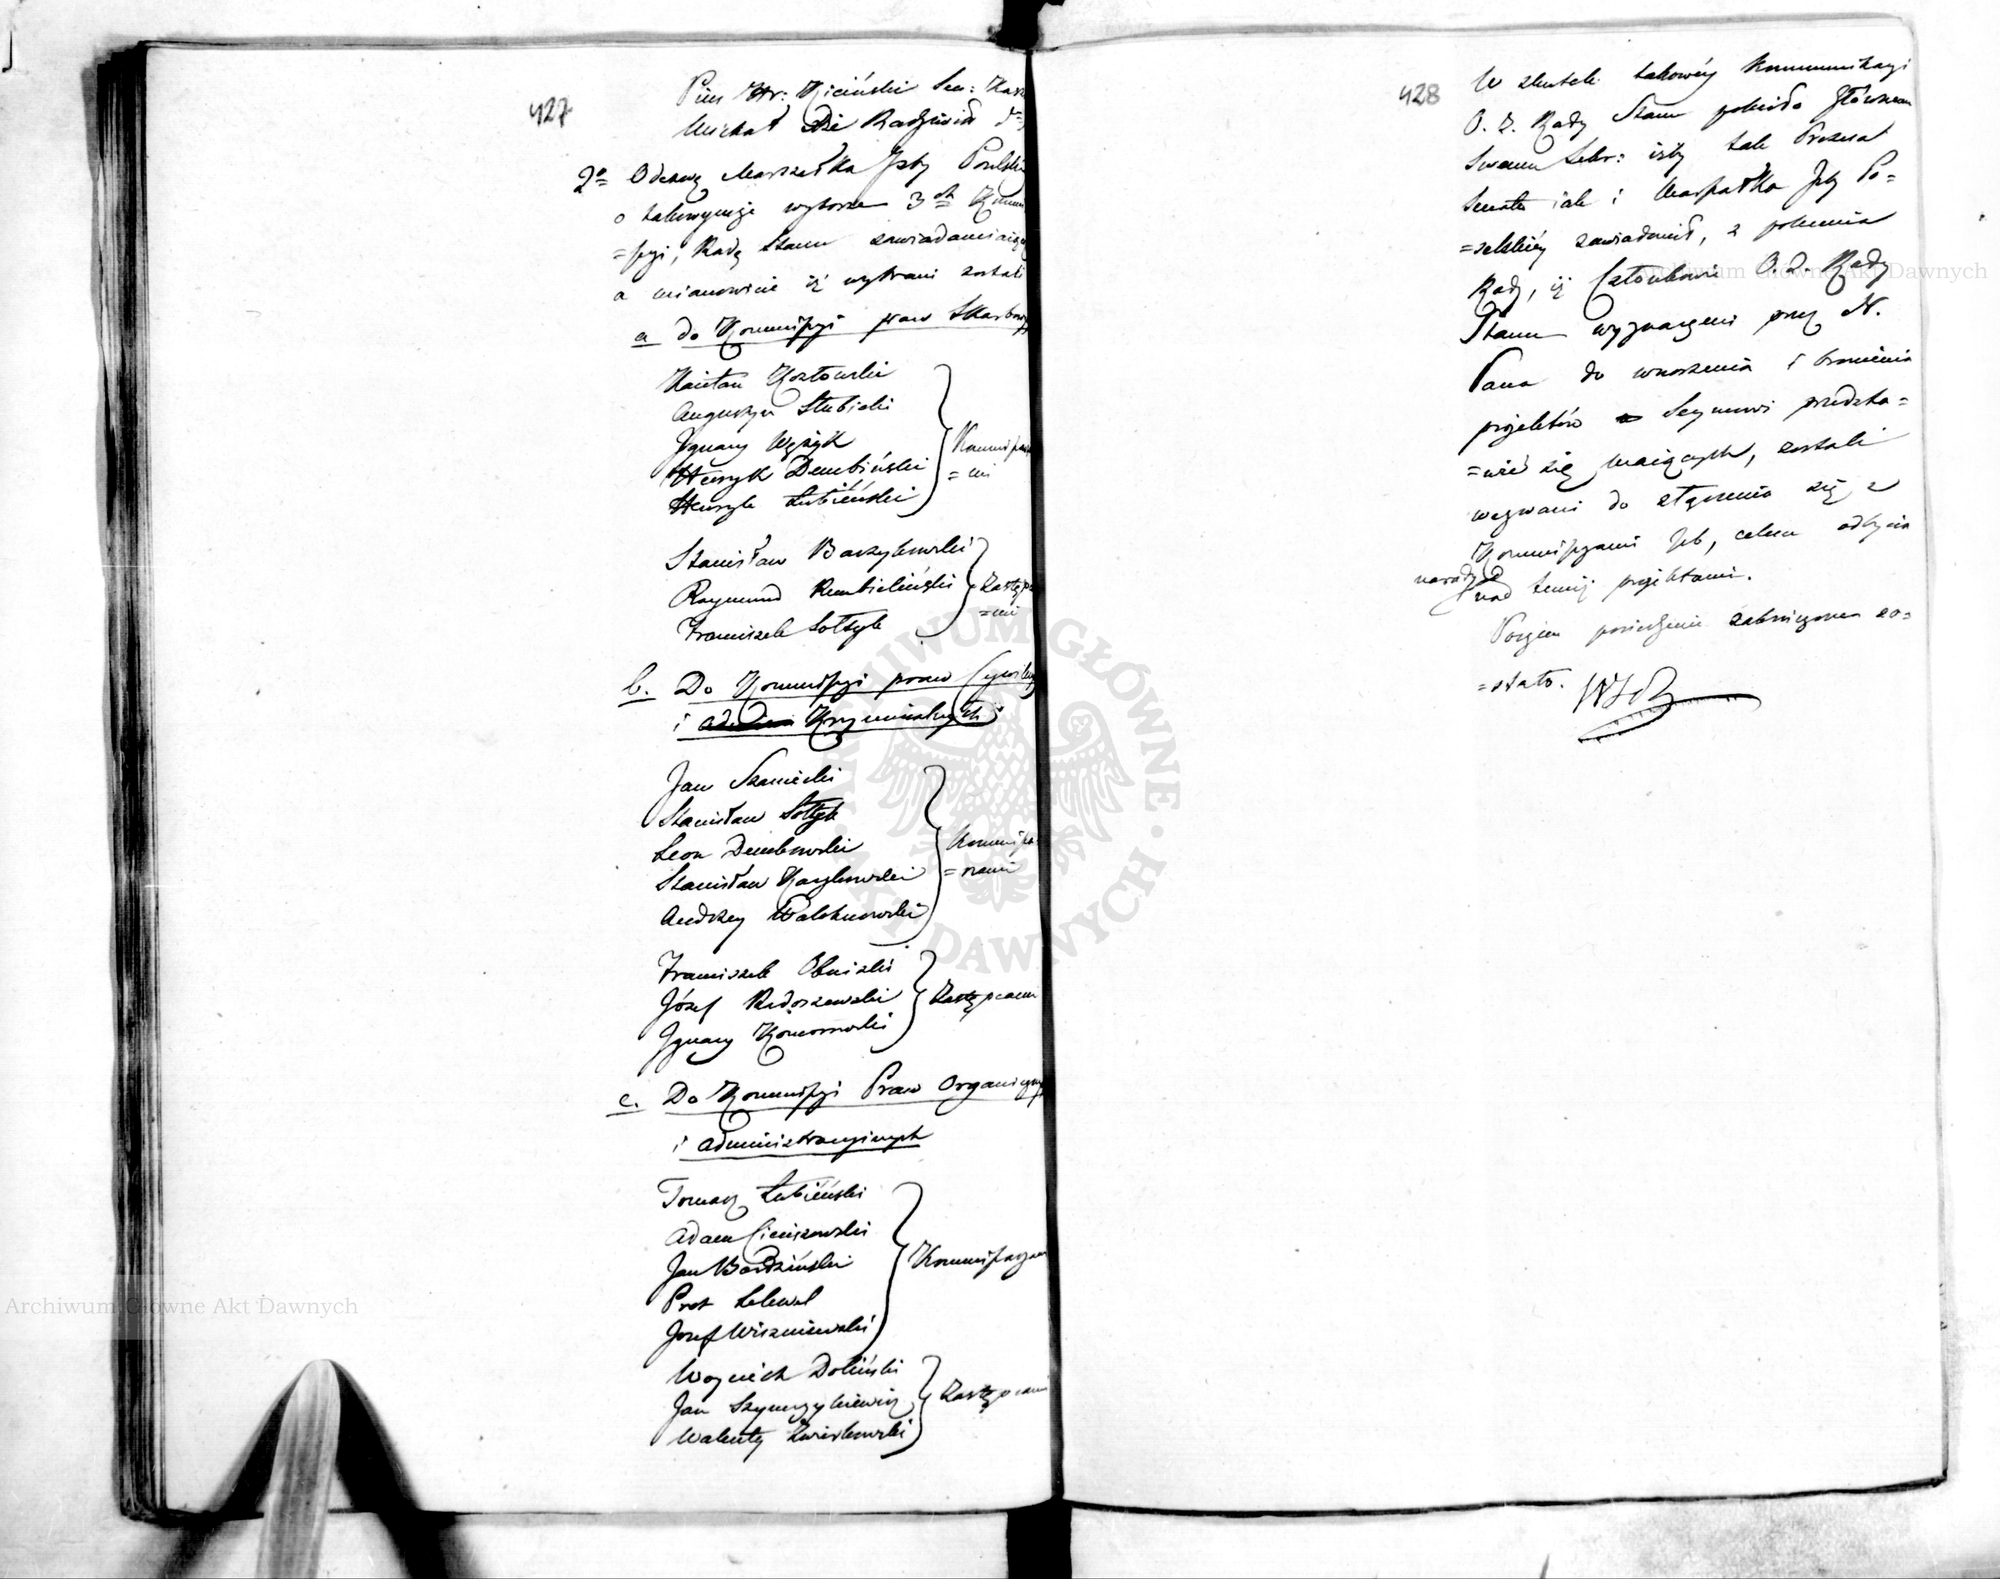 427
Pius Hr: Kiciński Sen: Kasz
Michał Xże Radziwiłł
2° Odezwę Marszałka Jzby Poselski
o takowymże wyborze 3ch Kommi
=ssyi, Radę Stanu zawiadamiaiącą
a mianowicie iż wybrani zostali
a do Kommissyi praw Skarbowych
Kaietan Kozłowski
Augustyn Słubicki
Jgnacy Wężyk
Henryk Dembiński
Henryk Łubieński
Kommissarza
=mi
Stanisław Barzykowski
Raymund Rembieliński
Franciszek Sołtyk
Zastępca
=mi
b. Do Kommissyi praw Cywilnych
i Kryminalnych
Jan Szaniecki
Stanisław Sołtyk
Leon Dembowski
Stanisław Kaczkowski
Andrzey Walchnowski
Kommissa
=rzami
Franciszek Obniski
Józef Radoszewski
Jgnacy Komorowski
Zastępcami
c. Do Kommissyi Praw Organicznych
i administracyinych
Tomasz Łubieński
Adam Cieciszowski
Jan Bardziński
Prot Lelewel
Jozef Wiszniewski
Kommissarzami
Woyciech Doliński
Jan Szymczykiewicz
Walenty Zwierkowski
Zastępcami
428
W skutek takowéy Kommunikacyi
O. Z. Rady Stanu poleciło Głównemu
Swemu Sekr: iżby tak Prezesa
Senatu iak i Marszałka Jzby Po=
=selskiéy zawiadomił, z polecenia
Rady, iż Członkowie O. Z. Rady
Stanu wyznaczeni przez N.
Pana do wnoszenia i bronienia
projektów Seymowi przedsta=
=wić się maiących, zostali
wezwani do złączenia się z
Kommissyami Jzb, celem odbycia
narady
nad temiż projektami.
Poczem posiedzenie zakończone zo=
=stało.